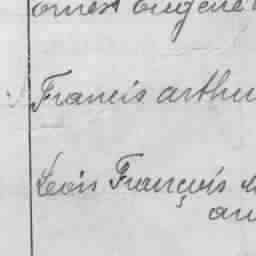 Ernest Eugene
Francis arthu
Louis François